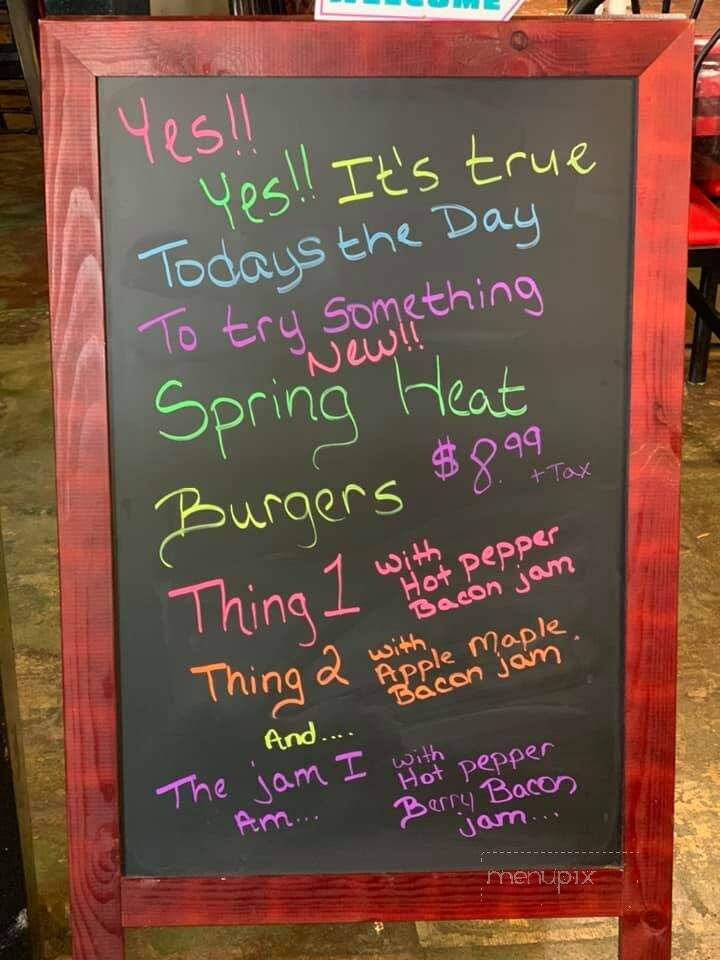 WELCOME
Yes!!
Yes!! It's true
Todays the Day
To try Something
New!!
Spring Heat
Burgers $8.99 + Tax
Thing 1 with Hot pepper Bacon jam
Thing 2 with Apple Maple. Bacon jam
And....
The jam I Am... with Hot pepper Berry Bacon jam...
menupix